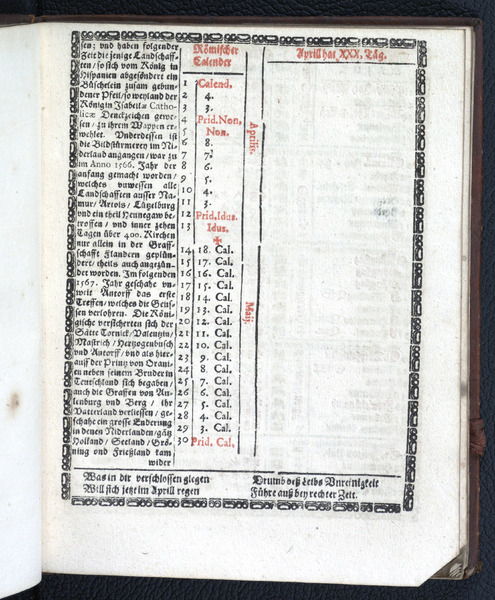 sen; vnd haben folgender
Zeit die jenige Landschaff-
ten / so sich vom König in
Hispanien abgesöndert ein
Büschelein zusam gebun-
dener Pfeil / so weyland der
Königin Isabelæ Catho-
licæ Denckzeichen gewe-
sen / zu ihrem Wappen er-
wehlet. Vnderdessen ist
die Bildstürmerey im Ni-
derland angangen / war zu
im Anno 1566. Jahr der
anfang gemacht worden /
welches vnwessen alle
Landschafften ausser Na-
mur / Artois / Lützelburg
vnd ein theil Hennegaw be-
troffen / vnd inner zehen
Tagen über 400. Kirchen
nur allein in der Graff-
schafft Flandern geplün-
dert / theils auch angezün-
det worden. Im folgenden
1567. Jahr geschahe vn-
weit Antorff das erste
Treffen / welches die Geus-
sen verlohren. Die Köni-
gische versicherten sich der
Sätte Tornick / Valentzin /
Mastrich / Hertzogenbusch
vnd Antorff / vnd als hier-
auff der Printz von Orani-
en neben seinem Bruder in
Teutschland sich begaben /
auch die Graffen von Cu-
lenburg vnd Berg / ihr
Vatterland verliessen / ge-
schahe ein grosse Enderung
in denen Niderlanden / gätz
Holland / Seeland / Grö-
ning ond Frießland kam
wider
Römischer
Calender
Aprill hat XXX. Täg.
1 Calend.
2 4.
3 3.
4 Prid. Non.
5 Non.
6 8.
7 7.
8 6.
9 5.
10 4.
11 3.
12 Prid. Idus.
13 Idus.
14 18. Cal.
15 17. Cal.
16 16. Cal.
17 15. Cal.
18 14. Cal.
19 13. Cal.
20 12. Cal.
21 11. Cal.
22 10. Cal.
23 9. Cal.
24 8. Cal.
25 7. Cal.
26 6. Cal.
27 5. Cal.
28 4. Cal.
29 3. Cal.
30 Prid. Cal.
Aprilis.
Maij.
Was in dir verschlossen glegen
Will sich jetzt im Aprill regen
Drumb deß Leibs Vnreinigkeit
Führe auß bey rechter Zeit.